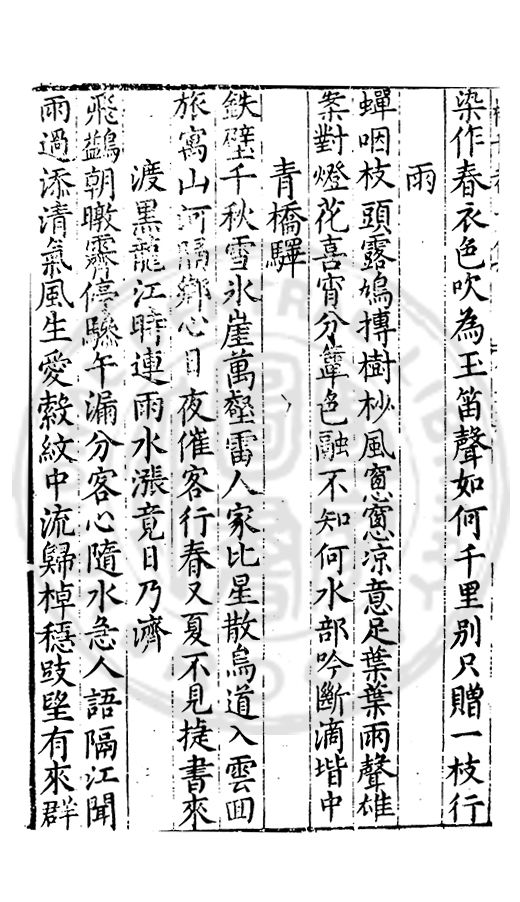 染作春衣色吹為玉笛聲如何千里別只贈一枝行
雨
蟬咽枝頭露鳩摶樹杪風窻窻凉意足葉葉雨聲雄
案對燈花喜宵分簟色融不知何水部吟斷滴堦中
青橋驛
鉄壁千秋雪氷崖萬壑雷人家比星散鳥道入雲囬
旅寓山河隔鄉心日夜催客行春又夏不見捷書來
渡黑龍江時連雨水漲竟日乃濟
飛鷁朝暾霽停驂午漏分客心隨水急人語隔江聞
雨過添清氣風生愛縠紋中流歸棹穩跂望有來群